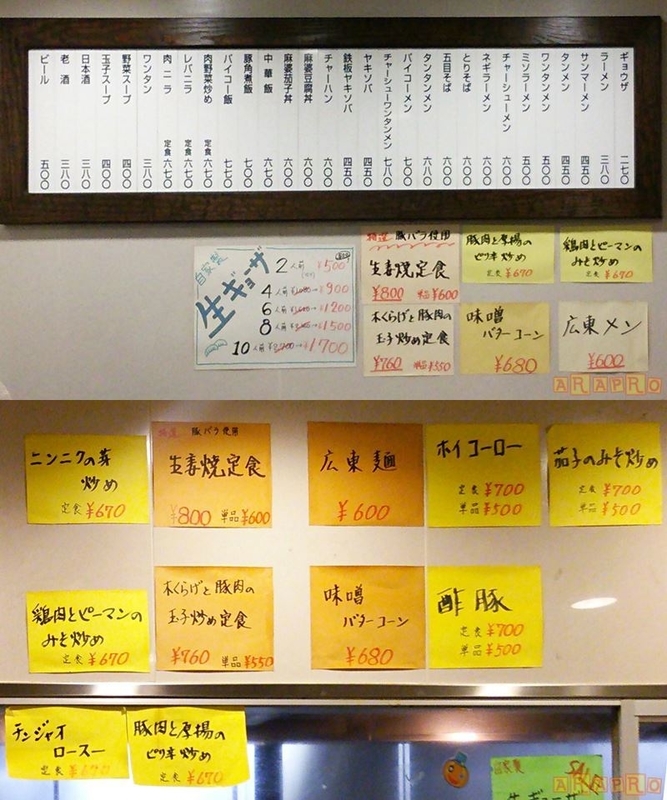 ギョウザ 二七〇
ラーメン 三八〇
サンマーメン 四五〇
タンメン 四五〇
ワンタンメン 五〇〇
ミソラーメン 五〇〇
チャーシューメン 六〇〇
ネギラーメン 六〇〇
とりそば 六〇〇
五目そば 六〇〇
タンタンメン 六八〇
パイコーメン 七〇〇
チャーシューワンタンメン 七八〇
ヤキソバ 四五〇
鉄板ヤキソバ 四五〇
チャーハン 六〇〇
麻婆豆腐丼 六〇〇
麻婆茄子丼 六〇〇
中華飯 六七〇
豚角煮飯 七〇〇
パイコー飯 七七〇
肉野菜炒め 定食 六七〇
レバニラ 定食 六七〇
肉ニラ 定食 六七〇
ワンタン 三八〇
野菜スープ 四〇〇
玉子スープ 四〇〇
日本酒 三八〇
老酒 三八〇
ビール 五〇〇
自家製
生ギョーザ
2人前 ¥500
4人前 → ¥900
6人前 → ¥1200
8人前 → ¥1500
10人前 → ¥1,700
特選 豚バラ使用
生姜焼定食
¥800 単品¥600
豚肉と厚揚の
ピリ辛炒め
定食 ¥670
鶏肉とピーマンの
みそ炒め
定食 ¥670
木くらげと豚肉の
玉子炒め定食
¥760 単品¥550
味噌
バターコーン
¥680
広東メン
¥600
ARAPRO
ニンニクの芽
炒め
定食 ¥670
特選 豚バラ使用
生姜焼定食
¥800 単品¥600
広東麺
¥600
ホイコーロー
定食 ¥700
単品 ¥500
茄子のみそ炒め
定食 ¥700
単品 ¥500
鶏肉とピーマンの
みそ炒め
定食 ¥670
木くらげと豚肉の
玉子炒め定食
¥760 単品¥550
味噌
バターコーン
¥680
酢豚
定食 ¥700
単品 ¥500
チンジャオ
ロースー
定食 ¥670
豚肉と厚揚の
ピリ辛炒め
定食 ¥670
自家製
生ギョーザ
ARAPRO